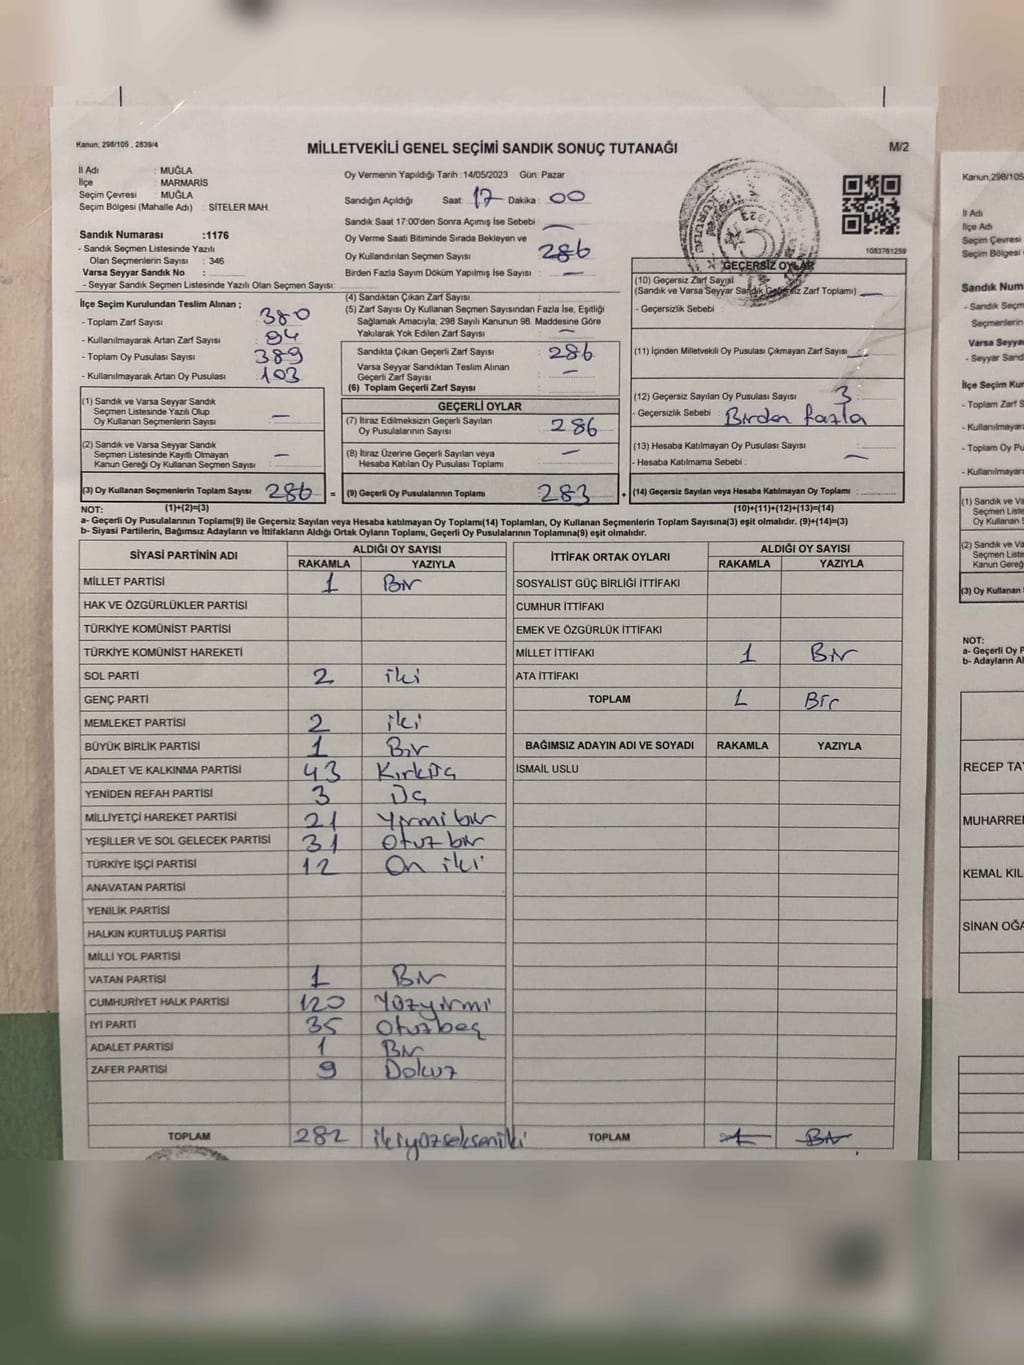 Kanun; 298/105 , 2839/4
MİLLETVEKİLİ GENEL SEÇİMİ SANDIK SONUÇ TUTANAĞI
M/2
İl Adı : MUĞLA
İlçe : MARMARİS
Seçim Çevresi : MUĞLA
Seçim Bölgesi (Mahalle Adı) : SİTELER MAH.
Sandık Numarası :1176
- Sandık Seçmen Listesinde Yazılı
Olan Seçmenlerin Sayısı : 346
Varsa Seyyar Sandık No :
- Seyyar Sandık Seçmen Listesinde Yazılı Olan Seçmen Sayısı:
Oy Vermenin Yapıldığı Tarih :14/05/2023 Gün: Pazar
Sandığın Açıldığı Saat: 17 Dakika : 00
Sandık Saat 17:00'den Sonra Açımış İse Sebebi : —
Oy Verme Saati Bitiminde Sırada Bekleyen ve
Oy Kullandırılan Seçmen Sayısı : 286
Birden Fazla Sayım Döküm Yapılmış İse Sayısı : —
1083761259
İlçe Seçim Kurulundan Teslim Alınan ;
- Toplam Zarf Sayısı : 380
- Kullanılmayarak Artan Zarf Sayısı : 94
- Toplam Oy Pusulası Sayısı : 389
- Kullanılmayarak Artan Oy Pusulası : 103
(1) Sandık ve Varsa Seyyar Sandık
Seçmen Listesinde Yazılı Olup
Oy Kullanan Seçmenlerin Sayısı : —
(2) Sandık ve Varsa Seyyar Sandık
Seçmen Listesinde Kayıtlı Olmayan
Kanun Gereği Oy Kullanan Seçmen Sayısı : —
(3) Oy Kullanan Seçmenlerin Toplam Sayısı : 286
(1)+(2)=(3)
(4) Sandıktan Çıkan Zarf Sayısı :
(5) Zarf Sayısı Oy Kullanan Seçmen Sayısından Fazla İse, Eşitliği
Sağlamak Amacıyla; 298 Sayılı Kanunun 98. Maddesine Göre
Yakılarak Yok Edilen Zarf Sayısı : —
Sandıkta Çıkan Geçerli Zarf Sayısı : 286
Varsa Seyyar Sandıktan Teslim Alınan
Geçerli Zarf Sayısı : —
(6) Toplam Geçerli Zarf Sayısı :
GEÇERLİ OYLAR
(7) İtiraz Edilmeksizin Geçerli Sayılan
Oy Pusulalarının Sayısı : 286
(8) İtiraz Üzerine Geçerli Sayılan veya
Hesaba Katılan Oy Pusulası Toplamı : —
= (9) Geçerli Oy Pusulalarının Toplamı : 283 +
GEÇERSİZ OYLAR
(10) Geçersiz Zarf Sayısı
(Sandık ve Varsa Seyyar Sandık Geçersiz Zarf Toplamı) : —
- Geçersizlik Sebebi :
(11) İçinden Milletvekili Oy Pusulası Çıkmayan Zarf Sayısı : —
(12) Geçersiz Sayılan Oy Pusulası Sayısı : 3
- Geçersizlik Sebebi : Birden fazla
(13) Hesaba Katılmayan Oy Pusulası Sayısı : —
- Hesaba Katılmama Sebebi :
(14) Geçersiz Sayılan veya Hesaba Katılmayan Oy Toplamı :
(10)+(11)+(12)+(13)=(14)
NOT:
a- Geçerli Oy Pusulalarının Toplamı(9) ile Geçersiz Sayılan veya Hesaba katılmayan Oy Toplamı(14) Toplamları, Oy Kullanan Seçmenlerin Toplam Sayısına(3) eşit olmalıdır. (9)+(14)=(3)
b- Siyasi Partilerin, Bağımsız Adayların ve İttifakların Aldığı Ortak Oyların Toplamı, Geçerli Oy Pusulalarının Toplamına(9) eşit olmalıdır.
SİYASİ PARTİNİN ADI ALDIĞI OY SAYISI
RAKAMLA YAZIYLA
MİLLET PARTİSİ 1 Bir
HAK VE ÖZGÜRLÜKLER PARTİSİ
TÜRKİYE KOMÜNİST PARTİSİ
TÜRKİYE KOMÜNİST HAREKETİ
SOL PARTİ 2 iki
GENÇ PARTİ
MEMLEKET PARTİSİ 2 iki
BÜYÜK BİRLİK PARTİSİ 1 Bir
ADALET VE KALKINMA PARTİSİ 43 Kırküç
YENİDEN REFAH PARTİSİ 3 Üç
MİLLİYETÇİ HAREKET PARTİSİ 21 Yirmi bir
YEŞİLLER VE SOL GELECEK PARTİSİ 31 Otuz bir
TÜRKİYE İŞÇİ PARTİSİ 12 On iki
ANAVATAN PARTİSİ
YENİLİK PARTİSİ
HALKIN KURTULUŞ PARTİSİ
MİLLİ YOL PARTİSİ
VATAN PARTİSİ 1 Bir
CUMHURİYET HALK PARTİSİ 120 Yüzyirmi
İYİ PARTİ 35 Otuzbeş
ADALET PARTİSİ 1 Bir
ZAFER PARTİSİ 9 Dokuz
TOPLAM 282 ikiyüzsekseniki
İTTİFAK ORTAK OYLARI ALDIĞI OY SAYISI
RAKAMLA YAZIYLA
SOSYALİST GÜÇ BİRLİĞİ İTTİFAKI
CUMHUR İTTİFAKI
EMEK VE ÖZGÜRLÜK İTTİFAKI
MİLLET İTTİFAKI 1 Bir
ATA İTTİFAKI
TOPLAM 1 Bir
BAĞIMSIZ ADAYIN ADI VE SOYADI RAKAMLA YAZIYLA
İSMAİL USLU
TOPLAM 1 Bir
Kanun;298/105
İl Adı
İlçe Adı
Seçim Çevresi
Seçim Bölgesi
Sandık Num
- Sandık Seçm
Seçmenlerin
Varsa Seyya
- Seyyar Sand
İlçe Seçim Kur
- Toplam Zarf S
- Kullanılmayara
- Toplam Oy Pu
- Kullanılmayara
(1) Sandık ve Va
Seçmen Liste
Oy Kullanan S
(2) Sandık ve Va
Seçmen Liste
Kanun Gereğ
(3) Oy Kullanan
NOT:
a- Geçerli Oy P
b- Adayların Al
RECEP TA
MUHARRE
KEMAL KIL
SİNAN OĞA